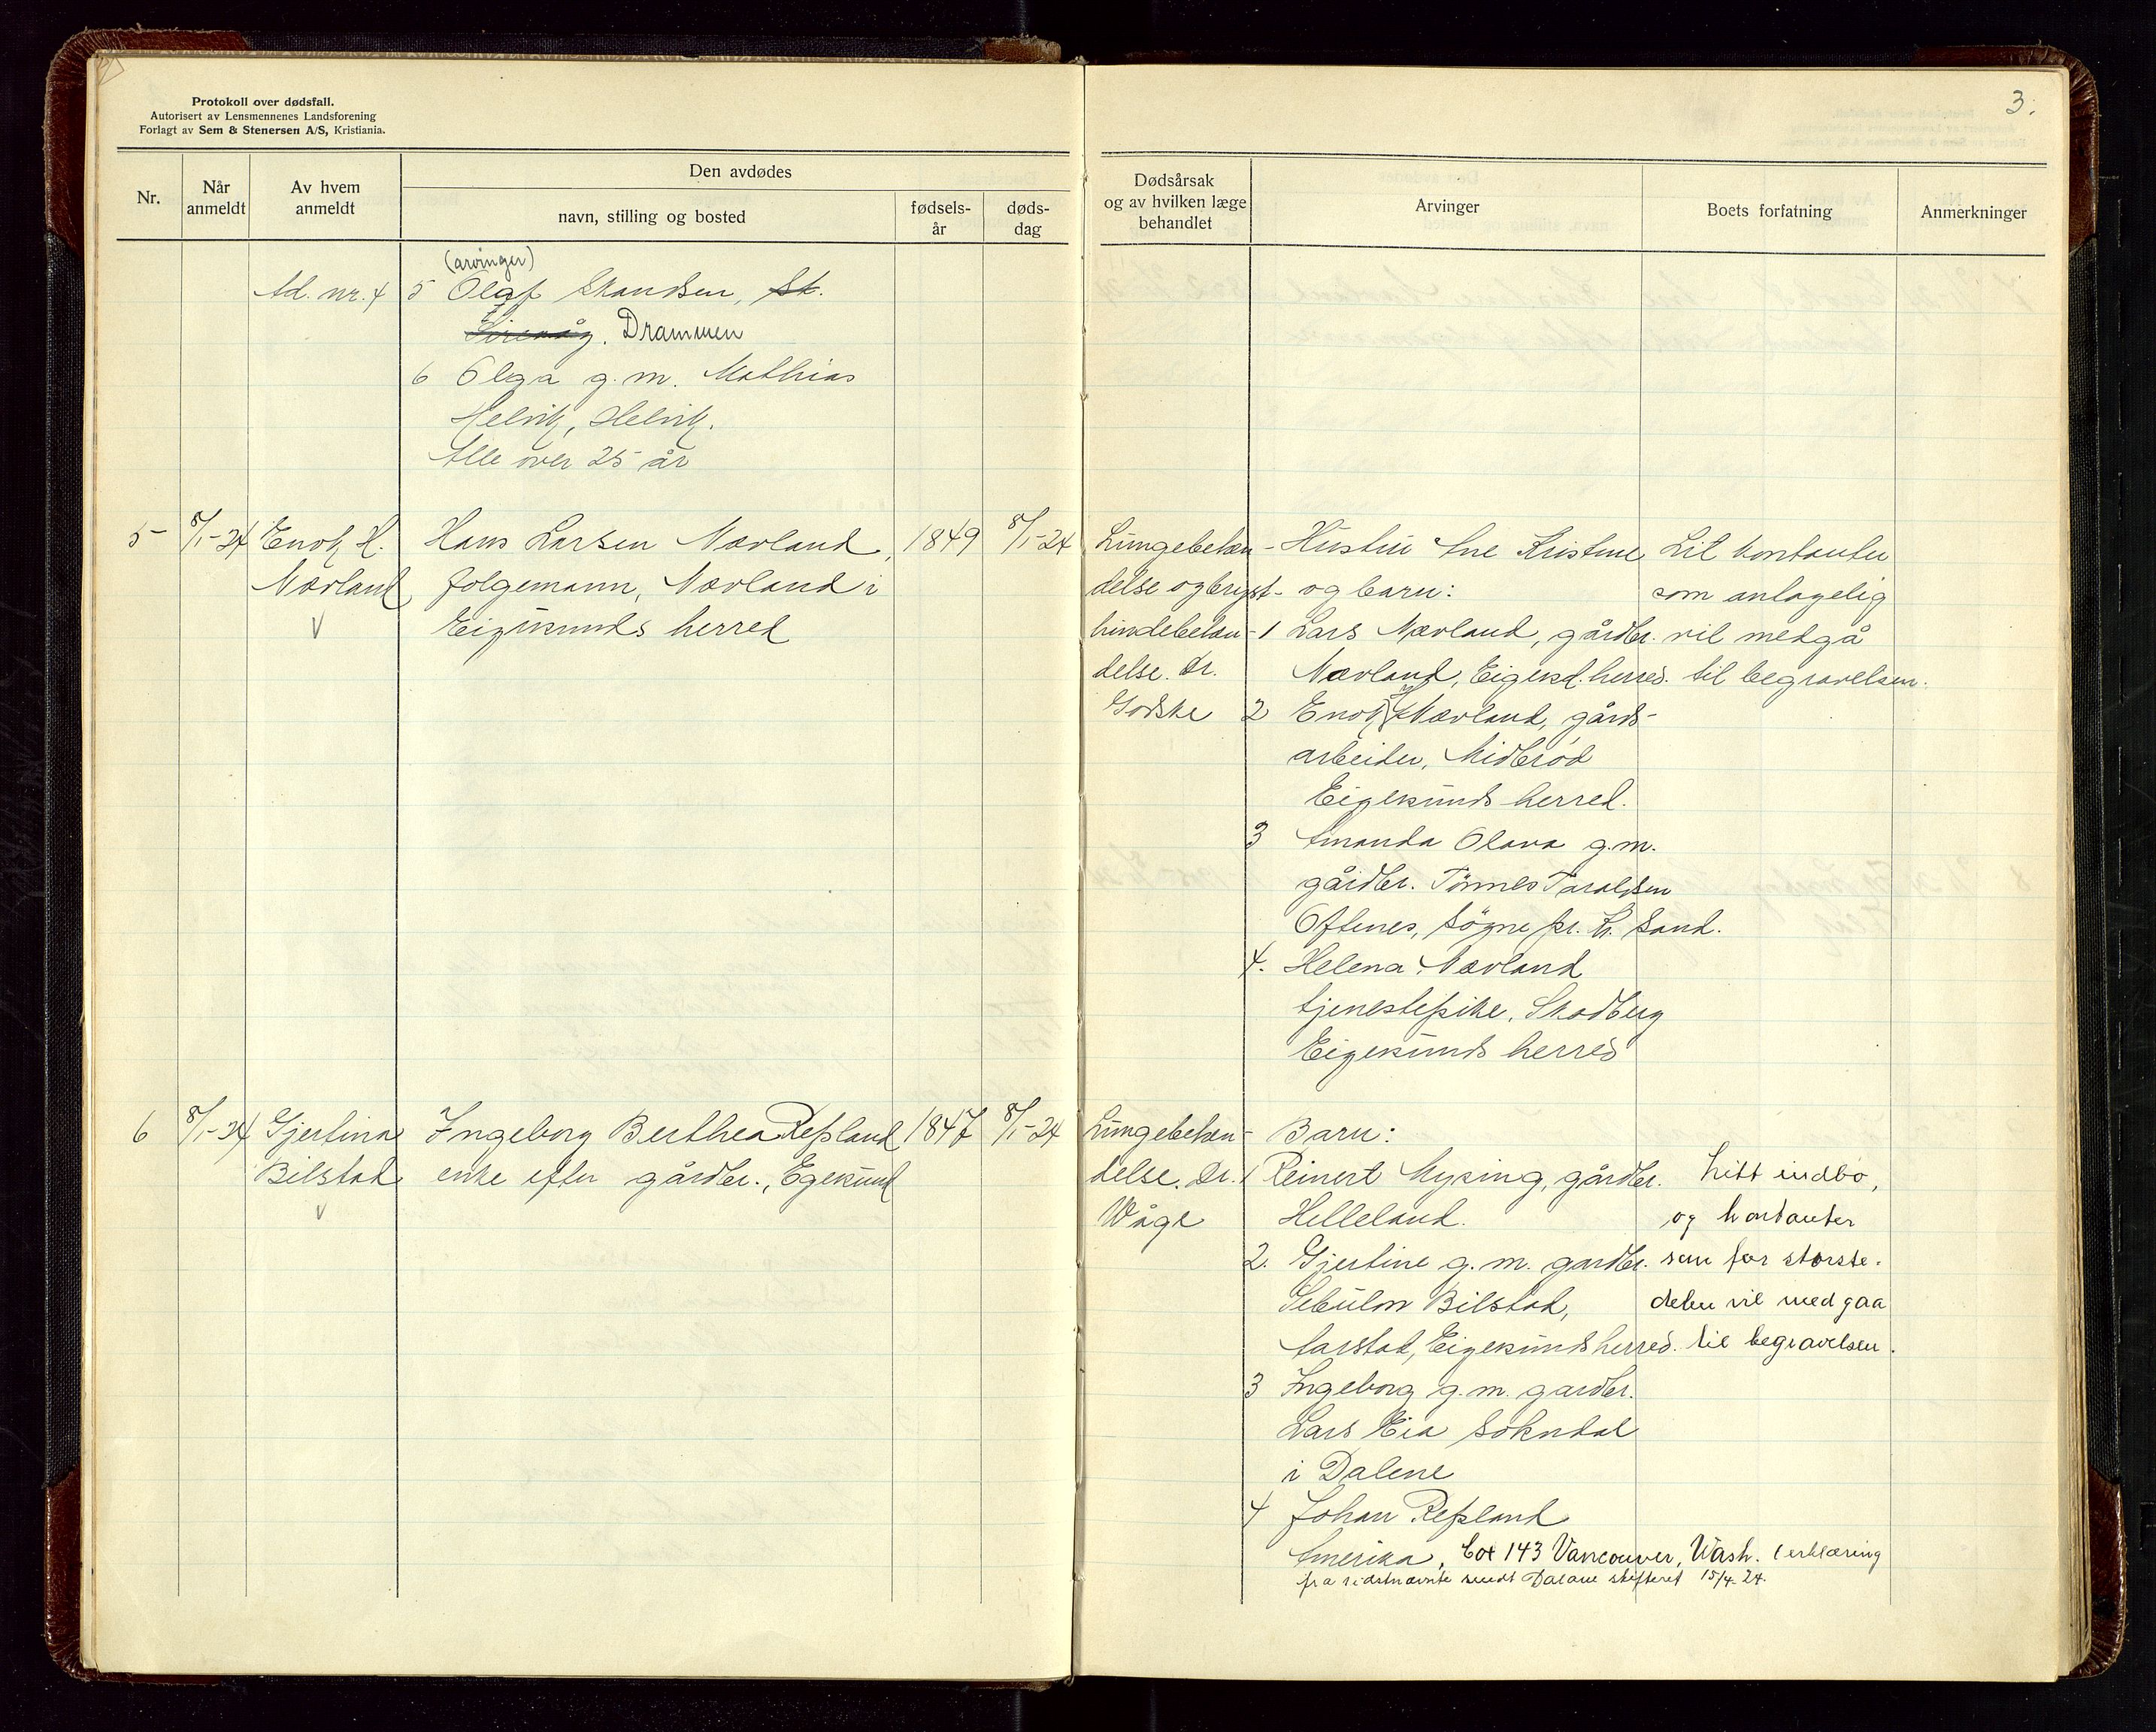 Protokoll over dødsfall.
Autorisert av Lensmennenes Landsforening
Forlagt av Sem & Stenersen A/S, Kristiania.
3.
Nr.
Når anmeldt
Av hvem anmeldt
Den avdødes
navn, stilling og bosted
fødsels-år
døds-dag
Dødsårsak og av hvilken læge behandlet
Arvinger
Boets forfatning
Anmerkninger
(arvinger)
Ad. nr. 4 5 Olaf Skandsen, St.
Sirevåg. Drammen
6 Olga g. m. Mathias
Helvik, Helvik.
Alle over 25 år
5 8/1-24 Enok H.
Nævland
V
Hans Larsen Nævland,
folgemann, Nævland i
Eigersunds herred
1849 8/1-24
Lungebeten-
delse og bryst-
hindebeten-
delse. Dr.
Godske
Hustru Ane Kristine
og barn:
1 Lars Nævland, gårdbr.
Nævland, Eigersd. herred.
2 Enok Nævland, gårds-
arbeider, Midbrød
Eigersunds herred.
3 Amanda Olava g.m.
gårdbr. Tønnes Taraldsen
Oftenes, Søgne pr. Kr. Sand.
4. Helena Nævland
tjenestepike, Skadberg
Eigersunds herred
Lit kontanter
som antagelig
vil medgå
til begravelsen.
6 8/1-24 Gjertina
Bilstad
V
Ingeborg Berthea Refsland
enke efter gårdbr., Egersund
1847 8/1-24
Lungebeten-
delse. Dr.
Wåge
Barn:
1 Reinert Mysing, gårdbr.
Helleland.
2. Gjertine g. m. gardbr.
Sebulon Bilstad,
Aarstad, Eigersunds herred.
3 Ingeborg g. m. gardbr.
Lars Eia Sokndal
i Dalene
4 Johan Refsland
Amerika, Box 143 Vancouver, Wash. (erklæring
fra sidstnævnte sendt Dalane skifteret 15/4-24.
Litt indbo,
og kontanter
som for største-
delen vil medgaa
til begravelsen.